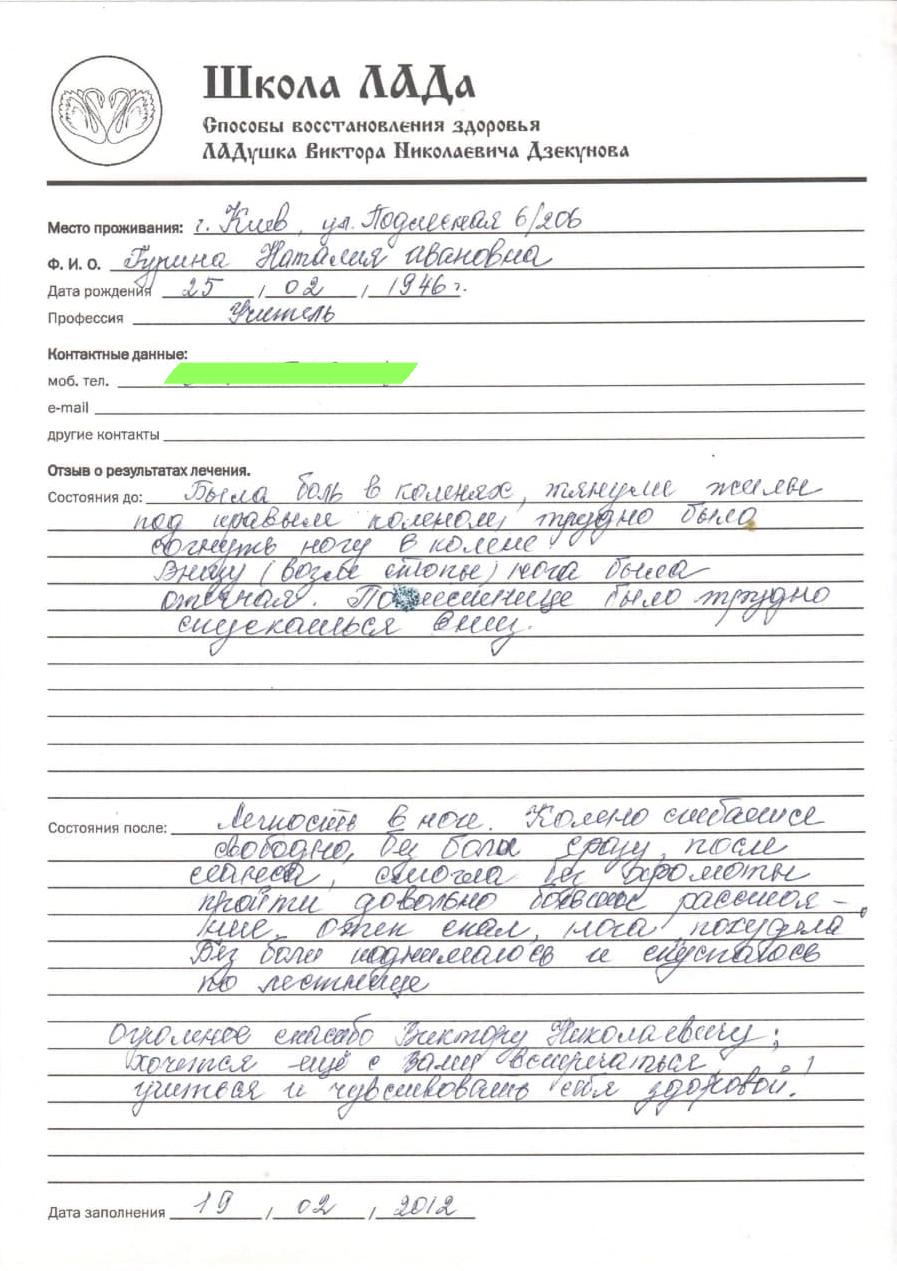 Школа ЛАДа
Способы восстановления здоровья
ЛАДушка Виктора Николаевича Дзекунова
Место проживания: г. Киев, ул. Подлесная 6/206
Ф. И. О. Гурина Наталия Ивановна
Дата рождения 25 / 02 / 1946 г.
Профессия Учитель
Контактные данные:
моб. тел.
e-mail
другие контакты
Отзыв о результатах лечения.
Состояния до: Была боль в коленях, тянули жилы
под правым коленом, трудно было
согнуть ногу в колене.
Внизу (возле стопы) нога была
отечная. По лестнице было трудно
спускаться вниз.
Состояния после: Легкость в ноге. Колено сгибается
свободно, без боли сразу после
сеанса, смогла без хромоты
пройти довольно большое расстоя-
ние, отек спал, нога похудела.
Без боли поднималось и спускалось
по лестнице
Огромное спасибо Виктору Николаевичу;
хочется ещё с Вами встречаться,
учиться и чувствовать себя здоровой!
Дата заполнения 19 / 02 / 2012